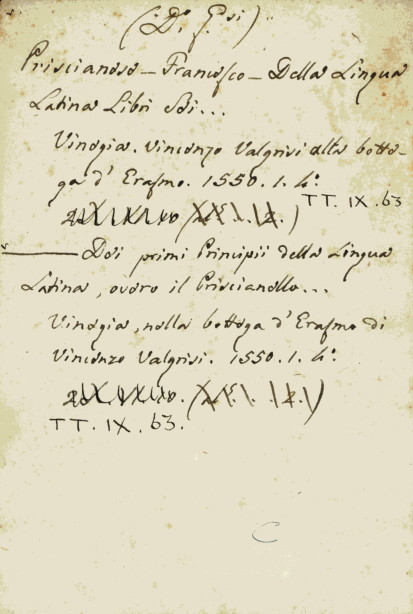 Priscianese — Francesco — Della Lingua
Latina Libri Sei...
Vinegia. Vincenzo Valgrisi alla botte-
ga d' Erasmo. 1550. 1. 4.º
TT. IX. 63
——— Dei primi Principii della Lingua
Latina, overo il Priscianello...
Vinegia, nella bottega d' Erasmo di
Vincenzo Valgrisi. 1550. 1. 4.º
TT. IX. 63.